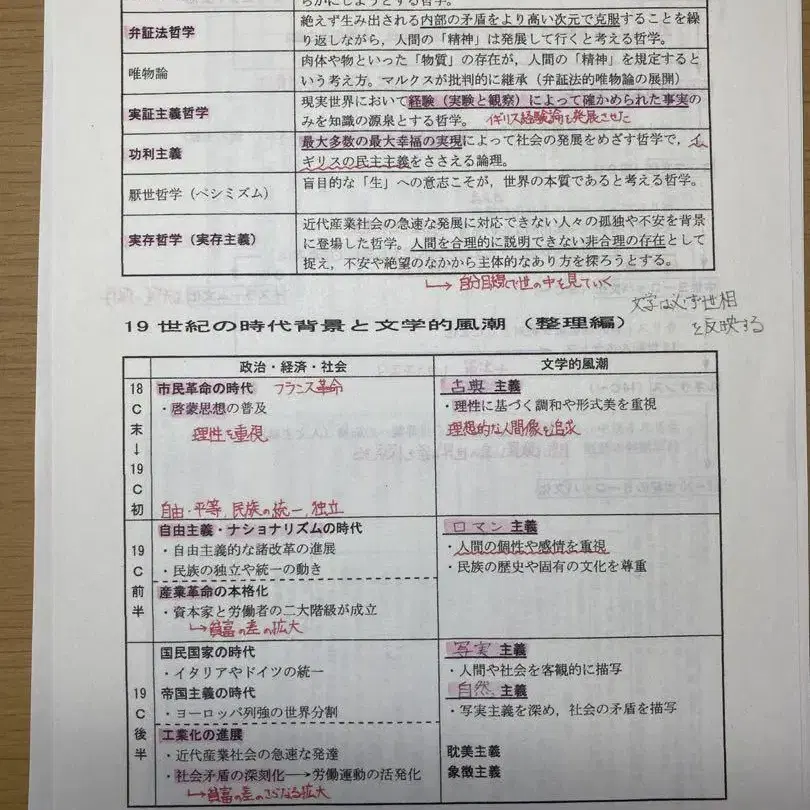 らかにしようとする哲学。
弁証法哲学
絶えず生み出される内部の矛盾をより高い次元で克服することを繰
り返しながら，人間の「精神」は発展して行くと考える哲学。
唯物論
肉体や物といった「物質」の存在が，人間の「精神」を規定すると
いう考え方。マルクスが批判的に継承（弁証法的唯物論の展開）
実証主義哲学
現実世界において経験（実験と観察）によって確かめられた事実の
みを知識の源泉とする哲学。 イギリス経験論を発展させた
功利主義
最大多数の最大幸福の実現によって社会の発展をめざす哲学で，イ
ギリスの民主主義をささえる論理。
厭世哲学（ペシミズム）
盲目的な「生」への意志こそが，世界の本質であると考える哲学。
実存哲学（実存主義）
近代産業社会の急速な発展に対応できない人々の孤独や不安を背景
に登場した哲学。人間を合理的に説明できない非合理の存在として
捉え，不安や絶望のなかから主体的なあり方を探ろうとする。
→自分目線で世の中を見ていく
文学は必ず世相
を反映する
19世紀の時代背景と文学的風潮（整理編）
政治・経済・社会
文学的風潮
18C末↓19C初
市民革命の時代 フランス革命
・啓蒙思想の普及
理性を重視
自由・平等，民族の統一，独立
古典主義
・理性に基づく調和や形式美を重視
理想的な人間像を追求
19C前半
自由主義・ナショナリズムの時代
・自由主義的な諸改革の進展
・民族の独立や統一の動き
産業革命の本格化
・資本家と労働者の二大階級が成立
→貧富の差の拡大
ロマン主義
・人間の個性や感情を重視
・民族の歴史や固有の文化を尊重
19C後半
国民国家の時代
・イタリアやドイツの統一
帝国主義の時代
・ヨーロッパ列強の世界分割
工業化の進展
・近代産業社会の急速な発達
・社会矛盾の深刻化→労働運動の活発化
→貧富の差のさらなる拡大
写実主義
・人間や社会を客観的に描写
自然主義
・写実主義を深め，社会の矛盾を描写
耽美主義
象徴主義